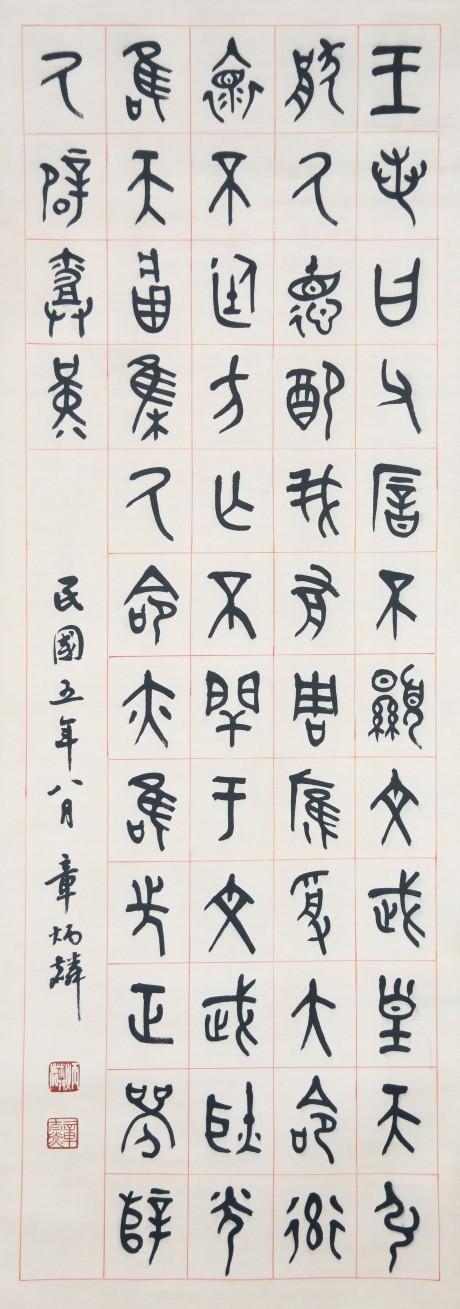 王若曰父㕆不顯文武皇天引
猒厥德配我有周膺受大命率
褱不廷方亡不閈于文武耿光
唯天將集厥命亦唯先正襄辥
厥辟堇
民國五年八月 章炳麟
章太炎